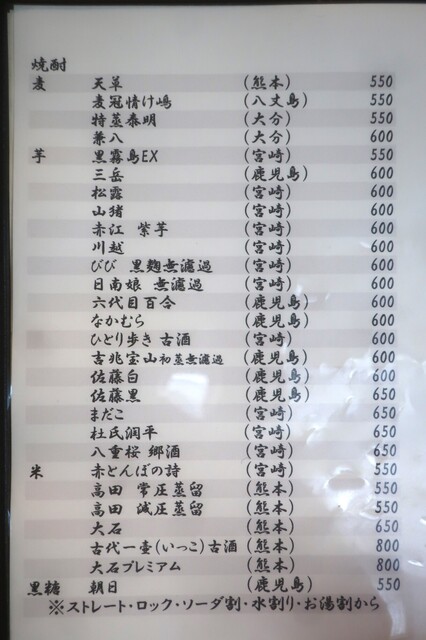 焼酎
麦 天草 (熊本) 550
麦冠情け嶋 (八丈島) 550
特蒸泰明 (大分) 550
兼八 (大分) 600
芋 黒霧島EX (宮崎) 550
三岳 (鹿児島) 600
松露 (宮崎) 600
山猪 (宮崎) 600
赤江 紫芋 (宮崎) 600
川越 (宮崎) 600
びび 黒麹無濾過 (宮崎) 600
日南娘 無濾過 (宮崎) 600
六代目百合 (鹿児島) 600
なかむら (鹿児島) 600
ひとり歩き 古酒 (宮崎) 600
吉兆宝山初蒸無濾過 (鹿児島) 600
佐藤白 (鹿児島) 600
佐藤黒 (鹿児島) 650
まだこ (宮崎) 650
杜氏潤平 (宮崎) 650
八重桜 郷酒 (宮崎) 650
米 赤とんぼの詩 (宮崎) 550
高田 常圧蒸留 (熊本) 550
高田 減圧蒸留 (熊本) 550
大石 (熊本) 650
古代一壺(いっこ)古酒 (熊本) 800
大石プレミアム (熊本) 800
黒糖 朝日 (鹿児島) 550
※ストレート・ロック・ソーダ割・水割り・お湯割から